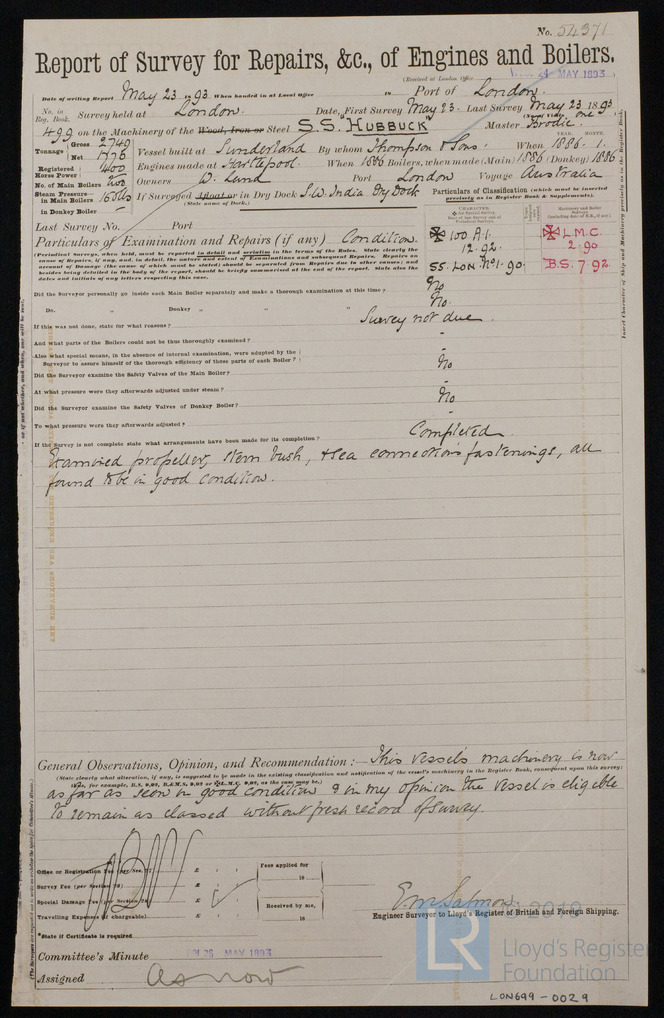 No. 54371
Report of Survey for Repairs, &c., of Engines and Boilers.
(Received at London Office MAY 1893
Date of writing Report May 23 1893 When handed in at Local Office 18 Port of London
No. in Reg. Book. Survey held at London Date, First Survey May 23 Last Survey May 23 1893
499 on the Machinery of the Wood, Iron or Steel S.S. "Hubbuck" Master Brodie
Tonnage Gross 2749 Net 1796 Vessel built at Sunderland By whom Thompson & Sons. When 1886. 1.
YEAR. MONTH.
Registered Horse Power 400 Engines made at Hartlepool. When 1886 Boilers, when made (Main) 1886 (Donkey) 1886
No. of Main Boilers Owners W. Lund Port London Voyage Australia
Steam Pressure in Main Boilers If Surveyed Afloat or in Dry Dock S.W. India Dry Dock
(State name of Dock.)
in Donkey Boiler
Particulars of Classification (which must be inserted precisely as in Register Book & Supplements).
Last Survey No. Port
100 A.1. L.M.C.
12.92. 2.90
SS. LON. No.1. 90. B.S. 7 92.
Particulars of Examination and Repairs (if any) Condition.
Did the Surveyor personally go inside each Main Boiler separately and make a thorough examination at this time? No.
Do. " Donkey " " " No.
If this was not done, state for what reasons? Survey not due
And what parts of the Boilers could not be thus thoroughly examined? -
Also what special means, in the absence of internal examination, were adopted by the Surveyor to assure himself of the thorough efficiency of those parts of each Boiler? -
Did the Surveyor examine the Safety Valves of the Main Boiler? No
At what pressure were they afterwards adjusted under steam? -
Did the Surveyor examine the Safety Valves of Donkey Boiler? No
To what pressure were they afterwards adjusted? -
If the Survey is not complete state what arrangements have been made for its completion? Completed
Examined propeller, stern bush, & sea connections fastenings, all
found to be in good condition.
General Observations, Opinion, and Recommendation:— This vessel's machinery is now
(State clearly what alteration, if any, is suggested to be made in the existing classification and notification of the vessel's machinery in the Register Book, consequent upon this survey;
as far as seen in good condition & in my opinion the vessel is eligible
to remain as classed without fresh record of survey.
Office or Registration Fee (per Sec. 27) £ : :
Survey Fee (per Section 28) £ : :
Special Damage Fee (per Section 28) £ : :
Travelling Expenses (if chargeable) £ : :
Fees applied for
18
Received by me,
18
E. W. Salmon
Engineer Surveyor to Lloyd's Register of British and Foreign Shipping.
*State if Certificate is required
Committee's Minute FRI 26 MAY 1893
Assigned As now
LR
2019
Lloyd's Register
Foundation
LON699-0029